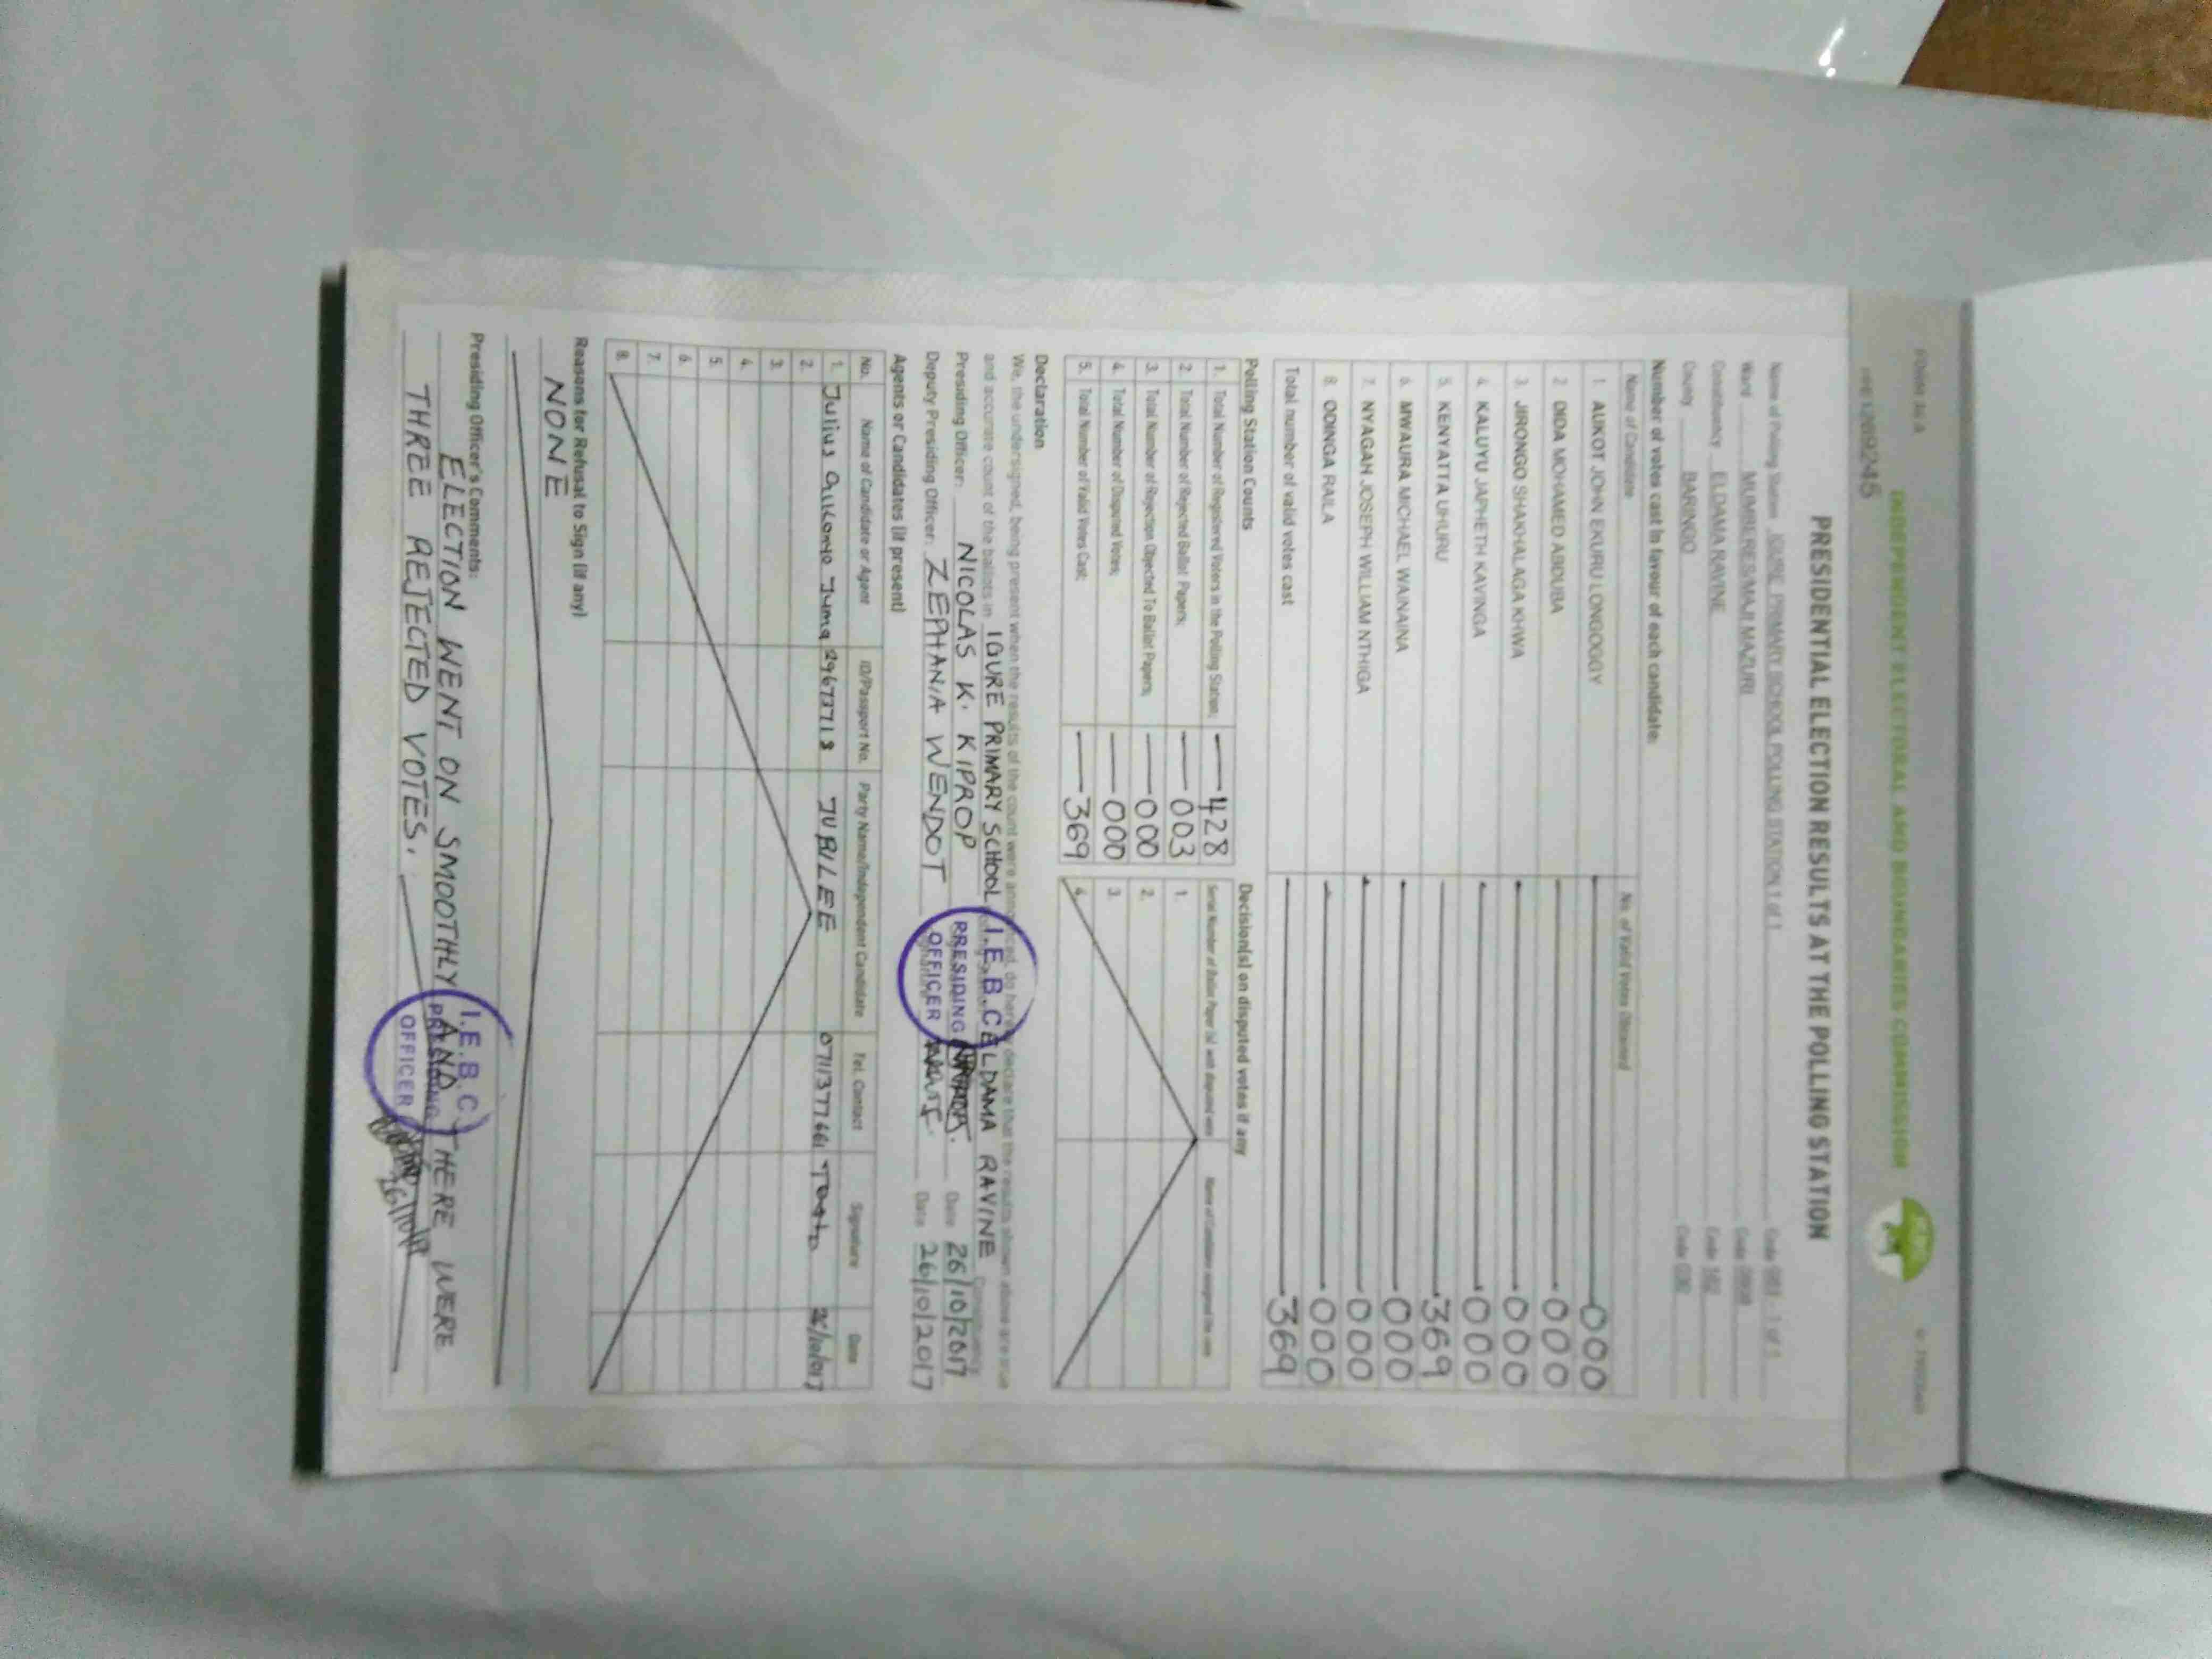 FORM 34 A
INDEPENDENT ELECTORAL AND BOUNDARIES COMMISSION
PRESIDENTIAL ELECTION RESULTS AT THE POLLING STATION
Name of Polling Station IGURE PRIMARY SCHOOL POLLING STATION 1 of 1 Code
Ward MUMBERES/MAJI MAZURI Code
Constituency ELDAMA RAVINE Code
County BARINGO Code
Number of votes cast in favour of each candidate:
Name of Candidate No. of Valid Votes Obtained
1. AUKOT JOHN EKURU LONGOGGY 000
2. DIDA MOHAMED ABDUBA 000
3. JIRONGO SHAKHALAGA KHWA 000
4. KALUYU JAPHETH KAVINGA 000
5. KENYATTA UHURU 369
6. MWAURA MICHAEL WAINAINA 000
7. NYAGAH JOSEPH WILLIAM NTHIGA 000
8. ODINGA RAILA 000
Total number of valid votes cast 369
Polling Station Counts
1. Total Number of Registered Voters in the Polling Station; 428
2. Total Number of Rejected Ballot Papers; 003
3. Total Number of Rejection Objected To Ballot Papers; 000
4. Total Number of Disputed Votes; 000
5. Total Number of Valid Votes Cast; 369
Decision(s) on disputed votes if any
Serial Number of Ballot Paper (s) with disputed vote Name of Candidate assigned the vote
1.
2.
3.
4.
Declaration
We, the undersigned, being present when the results of the count were announced, do hereby declare that the results shown above are true
and accurate count of the ballots in IGURE PRIMARY SCHOOL ELDAMA RAVINE Constituency
Presiding Officer: NICOLAS K. KIPROP Date 26/10/2017
Deputy Presiding Officer: ZEPHANIA WENDOT Date 26/10/2017
I.E.B.C
PRESIDING
OFFICER
Agents or Candidates (if present)
No. Name of Candidate or Agent ID/Passport No. Party Name/Independent Candidate Tel. Contact Signature Date
1. Julius Juma 29673713 JUBILEE 0711377661 26/10/2017
2.
3.
4.
5.
6.
7.
8.
Reasons for Refusal to Sign (if any)
NONE
Presiding Officer's Comments:
ELECTION WENT ON SMOOTHLY AND THERE WERE
THREE REJECTED VOTES.
I.E.B.C.
PRESIDING
OFFICER